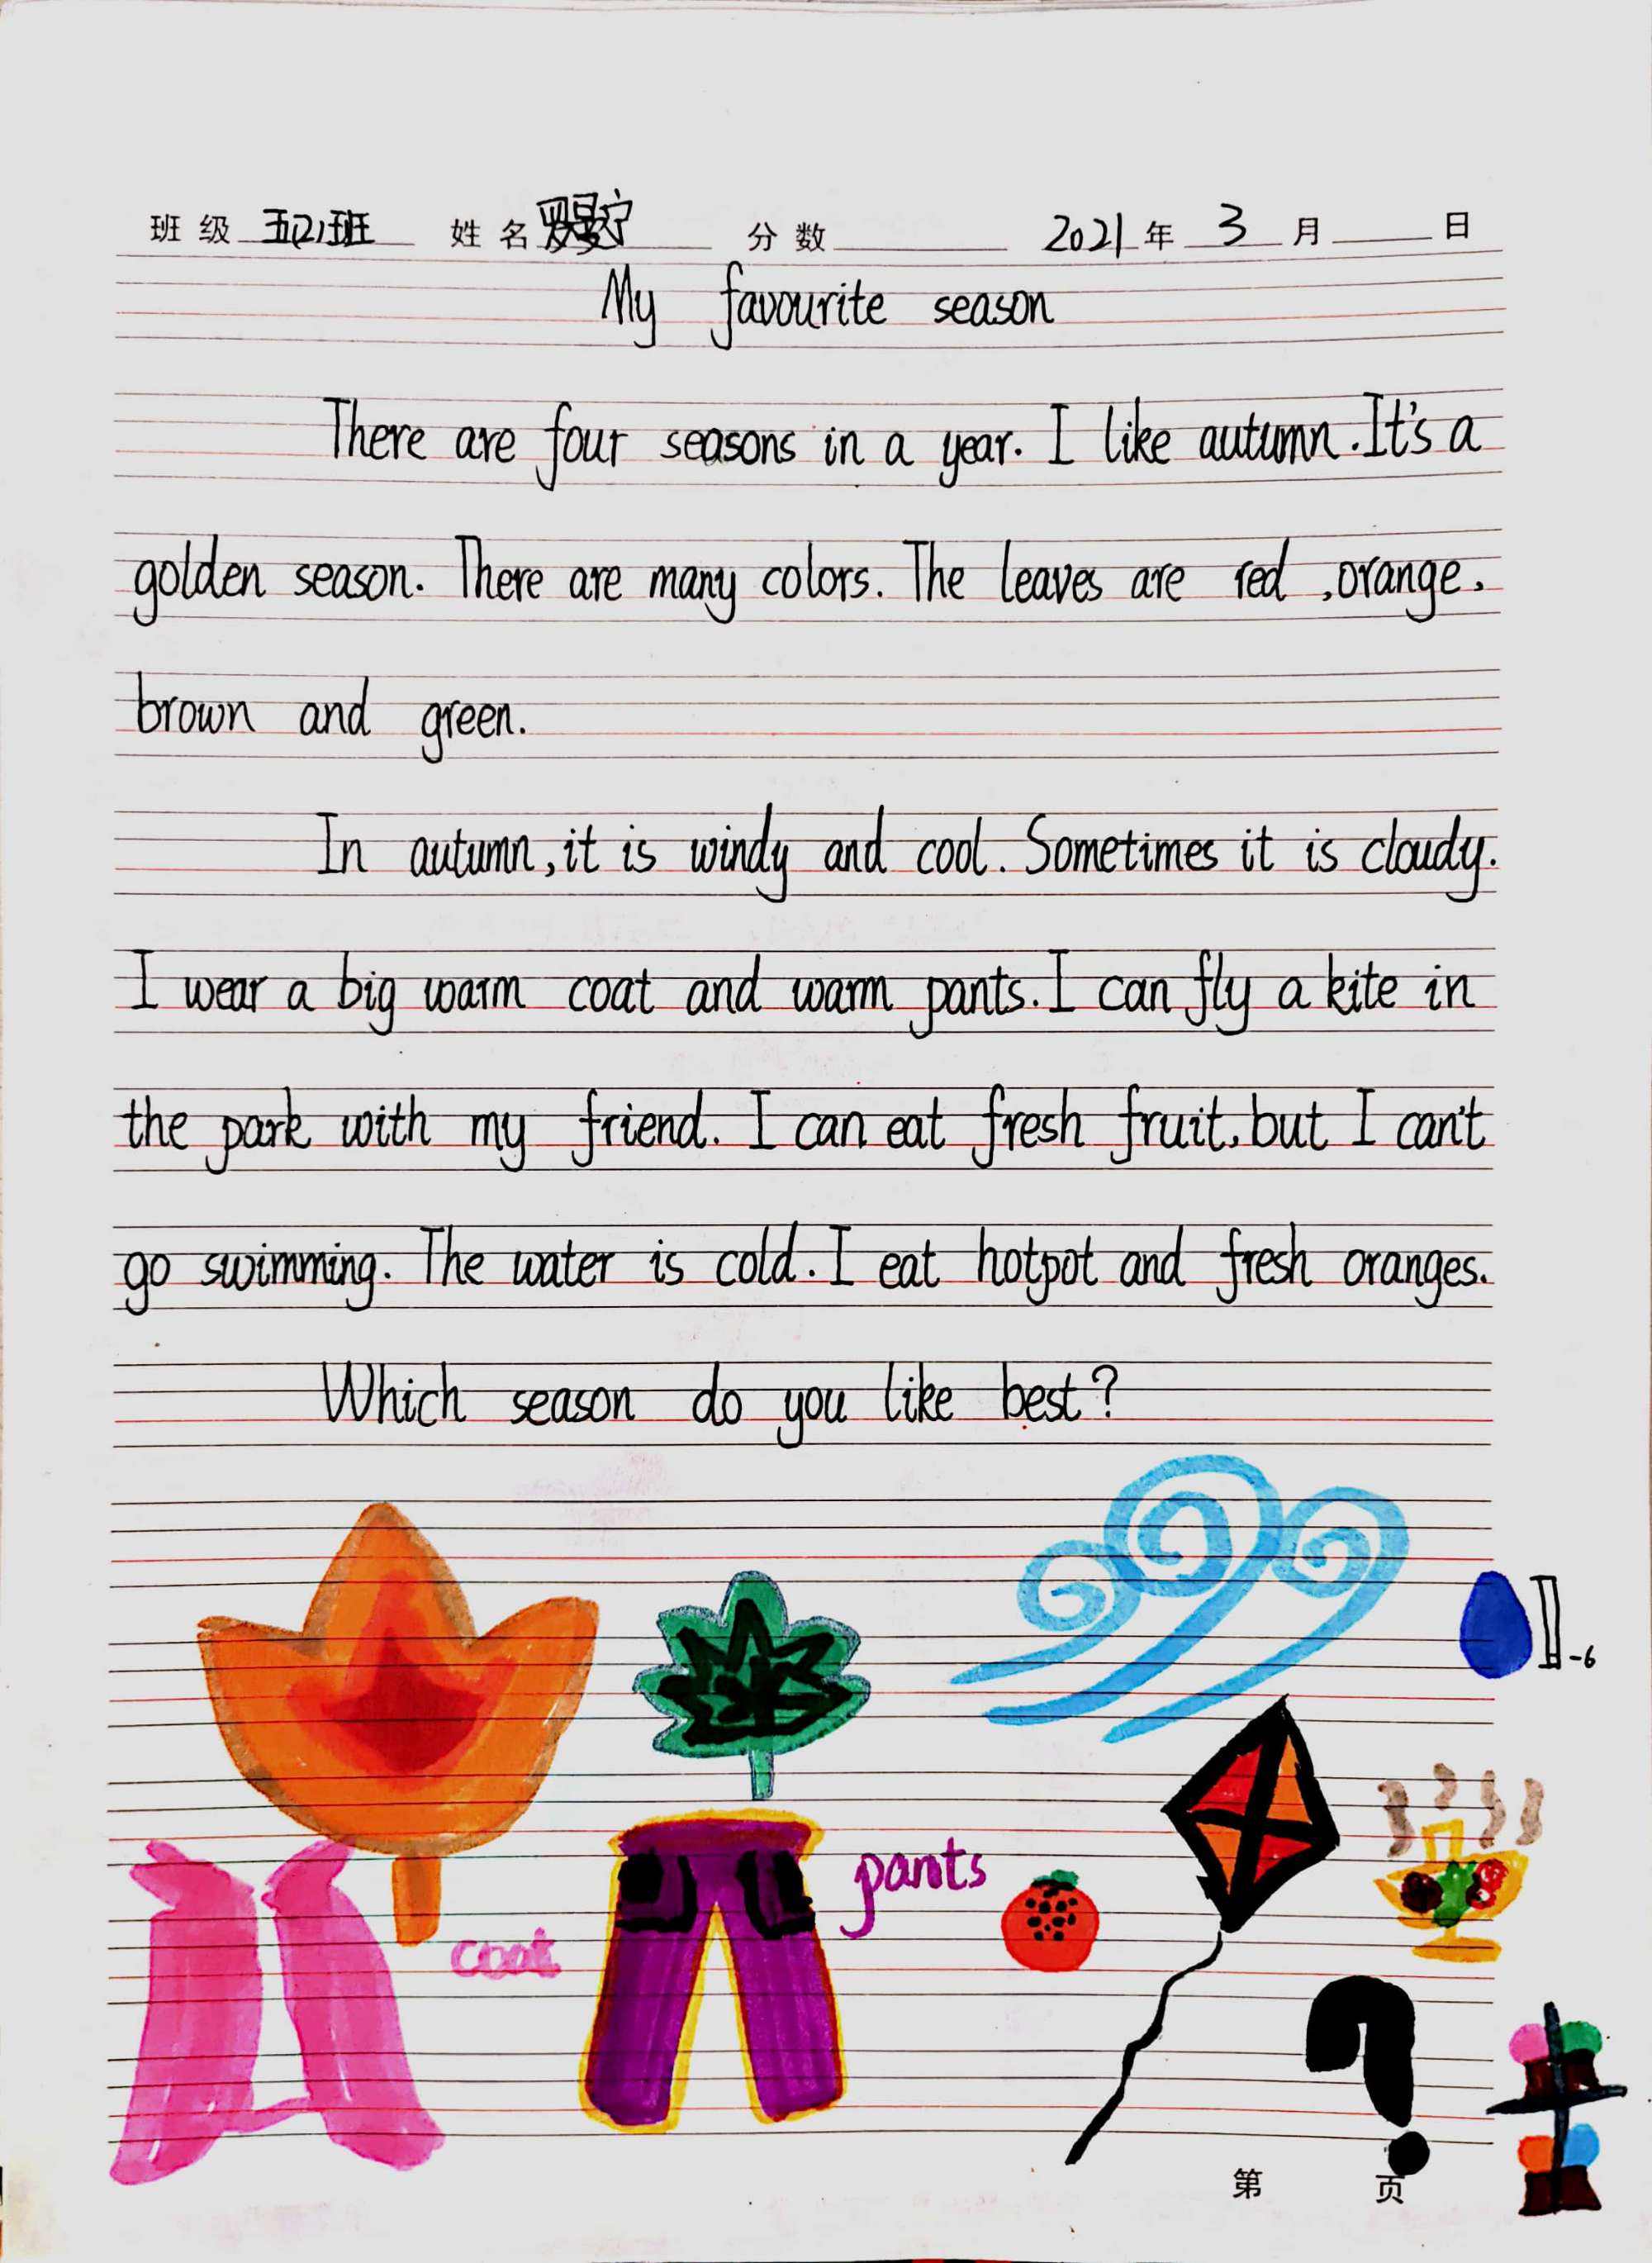 班级 五(2)班 姓名 罗曼宁 分数 2021年 3 月 日
My favourite season
There are four seasons in a year. I like autumn. It's a
golden season. There are many colors. The leaves are red ,orange,
brown and green.
In autumn, it is windy and cool. Sometimes it is cloudy.
I wear a big warm coat and warm pants. I can fly a kite in
the park with my friend. I can eat fresh fruit, but I can't
go swimming. The water is cold. I eat hotpot and fresh oranges.
Which season do you like best?
-6
pants
coat
?
第 页